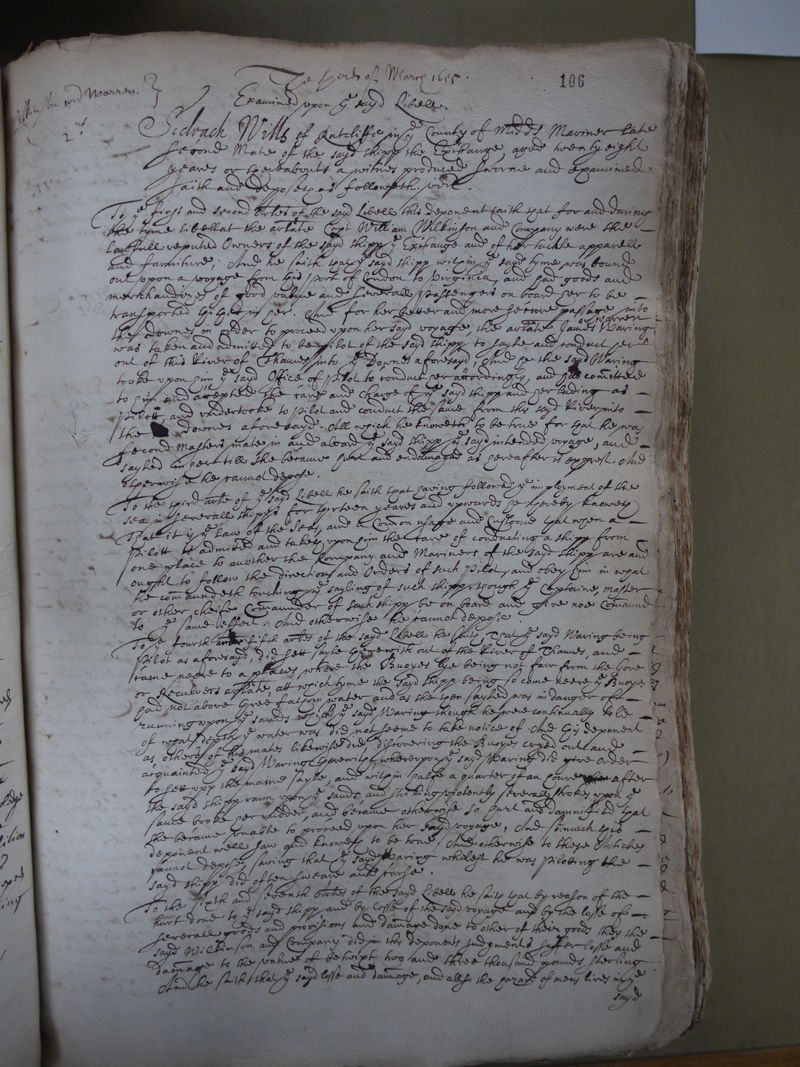 The third of March 1655.
106
Examined upon ye sayd Libell.
Warren.
2nd
Sidrach Wills of Ratcliffe in ye County of Midds Mariner late
second Mate of the sayd shipp the Exchange aged twenty eight
yeares or thereabouts a witnes produced sworne and examined
saith and deposeth as followeth, vizt.
To ye first and second Artes of the said Libell this deponent saith that for and during
the tyme libellat the arlate Capt William Wilkinson and Company were the
Lawfull reputed Owners of the sayd shipp ye Exchange and of her tackle apparell
and furniture; And he saith that ye sayd shipp within ye sayd tyme was bound
out upon a voyage from this port of London to Virginia, and had goods and
merchandizes of good value and severall Passengers on board her to be
transported in her. And for her better and more secure passage into
the Downes in order to proceed upon her said voyage, the arlate James Waring
or Warren
was taken and admitted to be pilot of the said shipp to sayle and conduct her
out of this River of Thames into ye Downes aforesayd, And he the said Waring
tooke upon him ye sayd Office of Pilot to conduct her accordingly, and had comitted
to him and accepted the care and charge of ye sayd shipp and her lading as
Pilott and undertooke to pilot and conduct the same from this sayd River into
the Downes aforesayd. All which he knoweth to be true for that he was
second Masters mate in and aboard ye said shipp ye sayd intended voyage, and
sayled in her till she became hurt and endamaged as hereafter is exprest. And
otherwise he cannot depose.
To the third arle of ye sayd Libell he saith that having followed ye imployment of the
sea in severall shipps for thirteen yeares and upwards he thereby knoweth
that it is ye law of the Seas, and a Comon usage and Custome that when a
Pilott is admitted and takes upon him the care of conducting a shipp from
one place to another the Company and Mariners of the said shipp are and
ought to follow the directions and Orders of such Pilot, and obey him in what
he commandeth touching ye sayling of such shipp though ye Captaine, master
or other cheife Comaunder of such shipp be on board and give noe Comaund
to ye same vessell. And otherwise he cannot depose.
To ye fourth and fifth artes of the sayd Libell he saith, That ye sayd Waring being
Pilot as aforesayd, did sett sayle therewith out of the River of Thames, and
came neere to a place where the Buoyes lye being not farr from the Gore
or Reculvers arlate, at which tyme the sayd shipp being so come neere ye Buoyes
had not above three fathom water and as she then sayled was in danger of
running upon ye sands which ye sayd Waring though he were continually told
of what depth ye water was did not seeme to take notice of. And this deponent
as others of the mates likewise did, discovering the Buoyes cryed out and
acquainted ye sayd Waring therewith, whereupon ye sayd Waring did give order
to sett upp the maine sayle, and within halfe a quarter of an houre after
the sayd shipp ran upon ye sands, and striking violently severall strokes upon ye
same broke her rudder, and became otherwise so hurt and damnified that
she became unable to proceed upon her sayd voyage, And somuch this
deponent well saw and knoweth to be true. And otherwise to these Articles
cannot depose, saving that ye sayd Waring whilest he was Pilotting the
sayd shipp did often sweare and curse.
To the sixth and seventh Artes of the sayd Libell he saith that by reason of the
hurt done to ye sayd shipp, and by losse of the sayd voyage and by the losse of
severall goods and provisions and damage done to other of their goods they the
sayd Wilkinson and Company did in this deponents judgment suffer losse and
damage to the value of betwixt two and three thousand pounds sterling
And he saith that ye sayd losse and damage, and allso the hazard of mens lives in ye
sayd